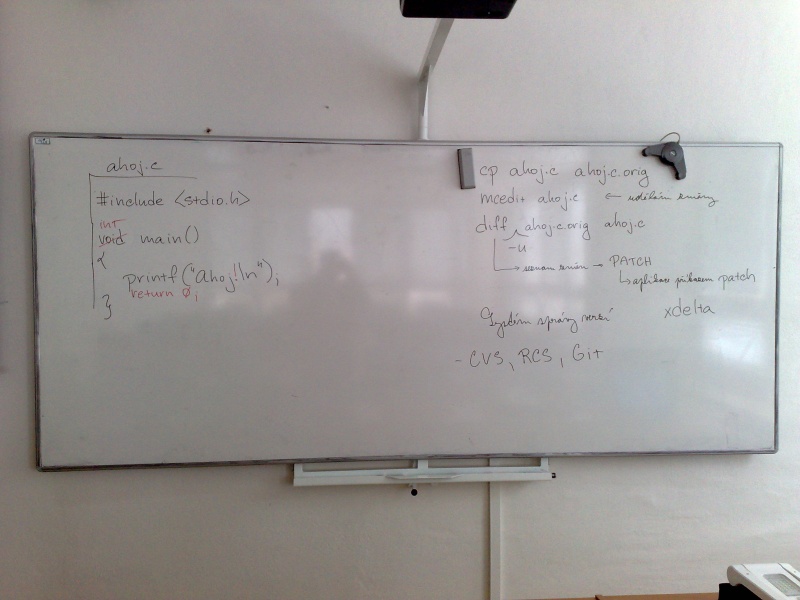 ahoj.c
#include <stdio.h>
int
void main()
{
printf("ahoj!\n");
return 0;
}
cp ahoj.c ahoj.c.orig
mcedit ahoj.c ← udělám změny
diff ahoj.c.orig ahoj.c
-u
→ seznam změn → PATCH
↳ aplikace příkazem patch
xdelta
Systém správy verzí
- CVS, RCS, Git